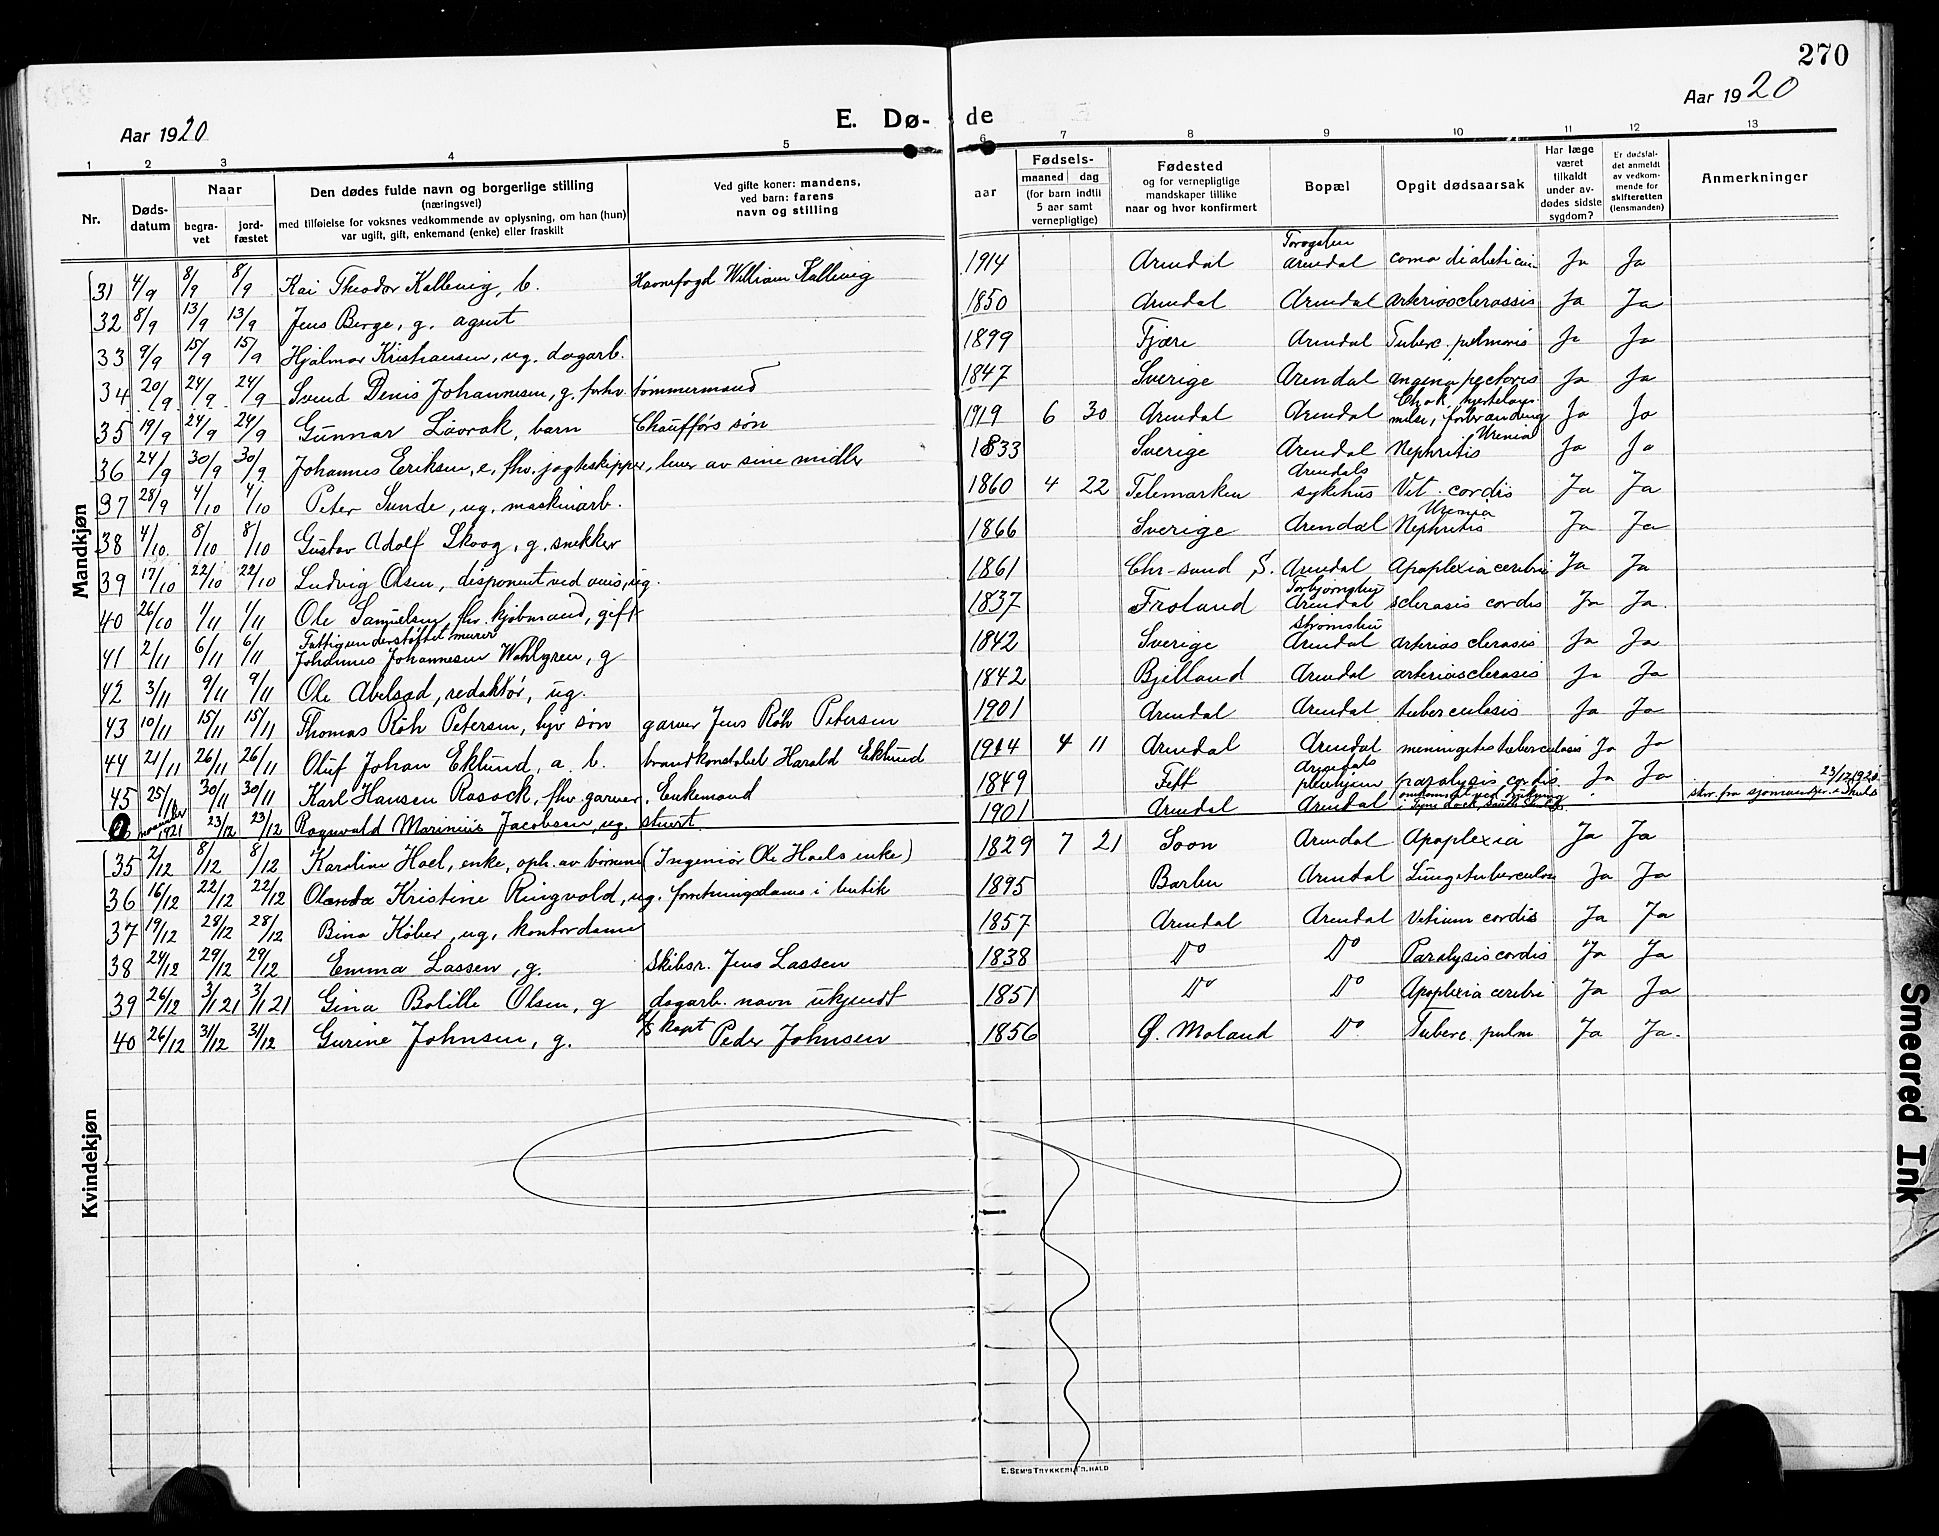 270
Aar 1920
E. Dø- de
Aar 1920
1 2 3 4 5 6 7 8 9 10 11 12 13
Nr.
Døds-
datum
Naar
begra-
vet
jord-
fæstet
Den dødes fulde navn og borgerlige stilling
(næringsvei)
med tilføielse for voksnes vedkommende av oplysning, om han (hun)
var ugift, gift, enkemand (enke) eller fraskilt
Ved gifte koner: mandens,
ved barn: farens
navn og stilling
Fødsels-
aar
maaned dag
(for barn indtil
5 aar samt
vernepligtige)
Fødested
og for vernepligtige
mandskaper tillike
naar og hvor konfirmert
Bopæl
Opgit dødsaarsak
Har læge
været
tilkaldt
under av-
dødes sidste
sygdom?
Er dødsfal-
det anmeldt
av vedkom-
mende for
skifteretten
(lensmanden)
Anmerkninger
Mandkjøn
31 4/9 8/9 8/9 Kai Theodor Kallevig, b. Havnefogd William Kallevig 1914 Arendal Arendal coma diabeticum Ja Ja
32 8/9 13/9 13/9 Jens Berge, g. agent 1850 Arendal Arendal arteriosclerossis Ja Ja
33 9/9 15/9 15/9 Hjalmar Kristiansen, ug. dagarb. 1899 Fjære Arendal Tuberc. pulmonis Ja Ja
34 20/9 24/9 24/9 Svend Denis Johannesen, g. forhv. tømmermand 1847 Sverige Arendal angena pectoris Ja Ja
35 19/9 24/9 24/9 Gunnar Laarak, barn Chaufførs søn 1919 6 30 Arendal Arendal Chok, hjertelam-
melse, forbrænding Ja Ja
36 24/9 30/9 30/9 Johannes Eriksen, e, fhv. jagteskipper, lever av sine midler 1833 Sverige Arendal Nephritis Uremia Ja Ja
37 28/9 4/10 4/10 Peter Sunde, ug. maskinarb. 1860 4 22 Telemarken Arendals
sykehus Vit. cordis Ja Ja
38 4/10 8/10 8/10 Gustav Adolf Skoog, g. snekker 1866 Sverige Arendal Uremia
Nephritis Ja Ja
39 17/10 22/10 22/10 Ludvig Olsen, disponent ved avis, ug. 1861 Chr-sand S. Arendal Apoplexia cerebri Ja Ja
40 26/10 1/11 1/11 Ole Samuelsen, fhv. kjøbmand, gift 1837 Froland Torbjørnsbu
Arendal sclerosis cordis Ja Ja.
41 2/11 6/11 6/11 Fattigunderstøttet murer
Johannes Johannesen Wahlgren, g 1842 Sverige Strømsbu
Arendal arteriosclerosis Ja Ja
42 3/11 9/11 9/11 Ole Abelsad, redaktør, ug. 1842 Bjelland Arendal arteriosclerosis Ja Ja
43 10/11 15/11 15/11 Thomas Røh Petersen, hjv søn garver Jens Røh Petersen 1901 Arendal Arendal tuberculosis Ja Ja
44 21/11 26/11 26/11 Oluf Johan Eklund, a. b. brandkonstabel Harald Eklund 1914 4 11 Arendal Arendal meningitis tuberculosis Ja Ja
45 25/11 30/11 30/11 Karl Hansen Rasock, fhv. garver, Enkemand 1849 Arendals
pleiehjem paralysis cordis Ja Ja
november
1921 23/12 23/12 Ragnvald Marinius Jacobsen, ug. stuert. 1901 Arendal Arendal omkommet ved drukning 23/12 1920
Kvindekjøn
35 2/12 8/12 8/12 Karoline Hoel, enke, oph. av børnene (Ingeniør Ole Hoels enke) 1829 7 21 Soon Arendal Apoplexia Ja Ja
36 16/12 22/12 22/12 Olanda Kristine Ringvold, ug. forretningsdame i butik 1895 Barbu Arendal Lungetuberculose Ja Ja
37 19/12 28/12 28/12 Bina Køber, ug, kontordame 1857 Arendal Arendal Vitium cordis Ja Ja
38 24/12 29/12 29/12 Emma Lassen, g. skibsr. Jens Lassen 1838 Do Do Paralysis cordis Ja Ja
39 26/12 3/1 21 3/1 21 Gina Bolille Olsen, g dagarb. navn ukjendt 1851 Do Do Apoplexia cerebri Ja Ja
40 26/12 31/12 31/12 Gurine Johnsen, g. d/s kapt Peder Johnsen 1856 Ø. Moland Do Tuberc. pulm Ja Ja.
E. SEM'S TRYKKERI FR. HALD
Smeared Ink